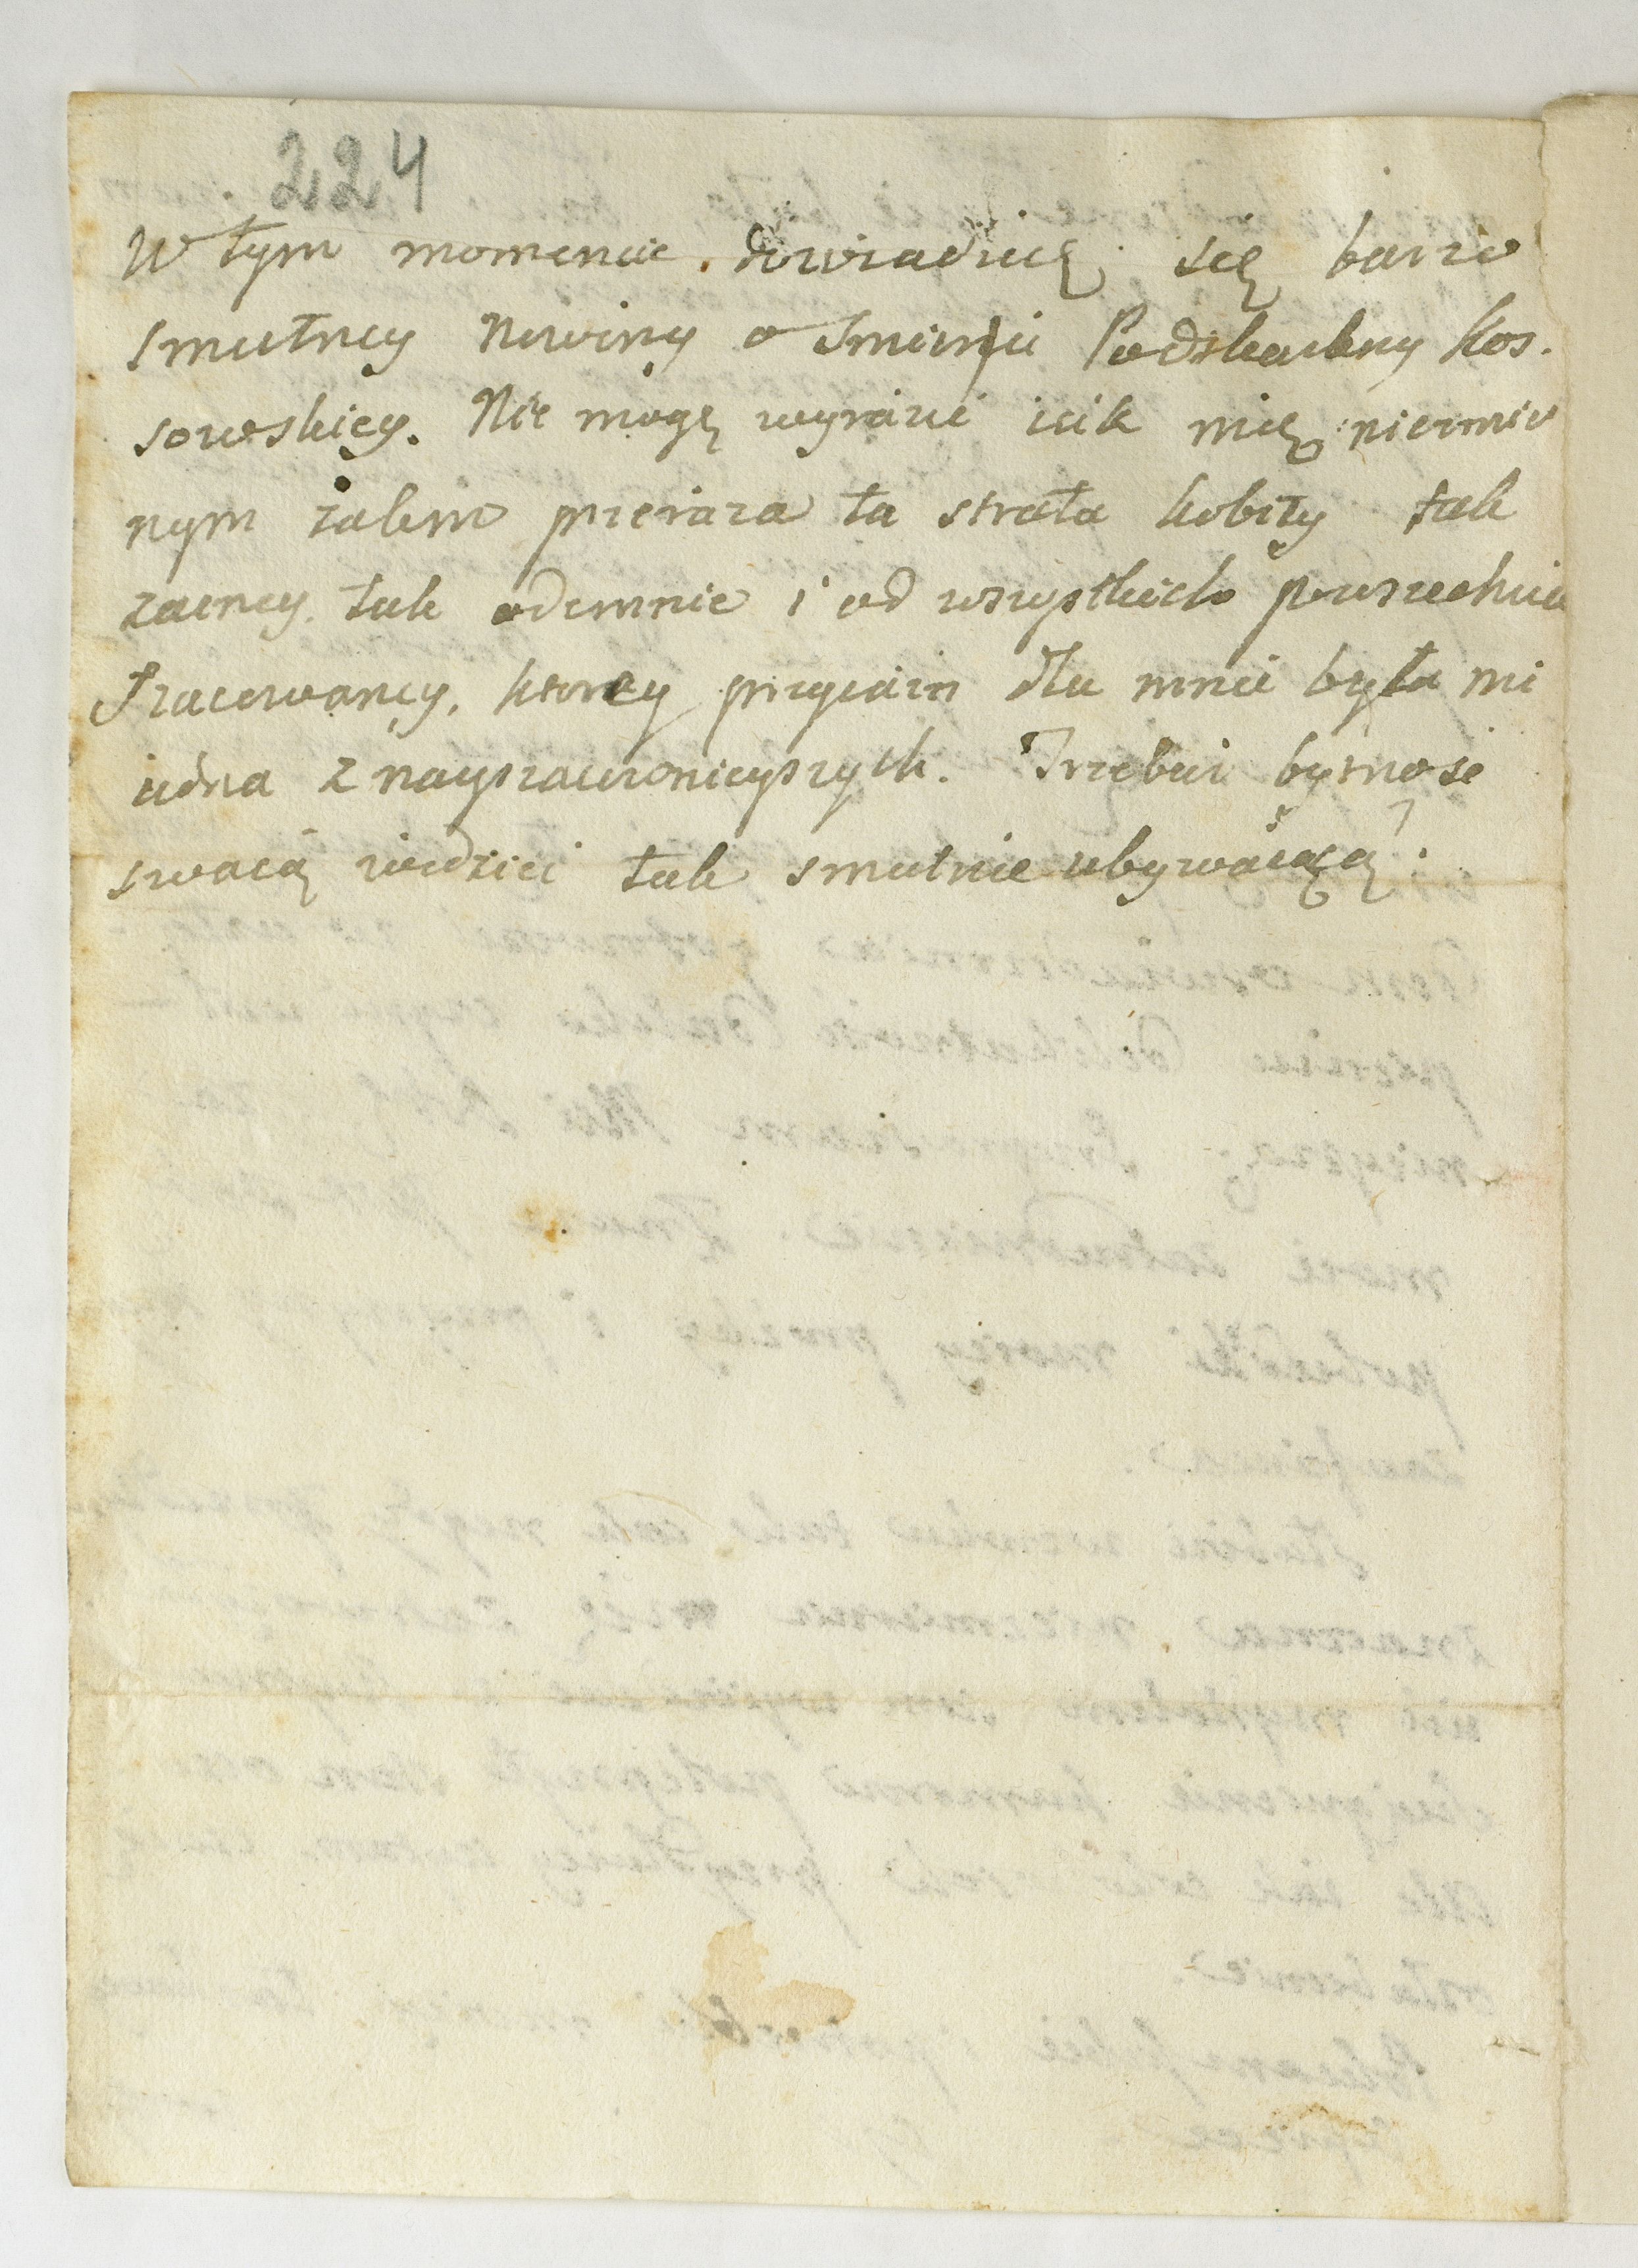 224
W tym momencie dowiaduię się barzo
smutney Nowiny o Smierci Podskarbiny Kos.
sowskiey. Nie mogę wyrazić iak mię niezmier
nym żalem przeraza ta strata kobity tak
zacney, tak odemnie i od wszystkich powszechnie
szacowaney, ktorey przyiazn dla mnie była mi
iedna z nayszacownieyszych. Trzebaż bytnosc
swoią widzieć tak smutnie ubywaiącą?